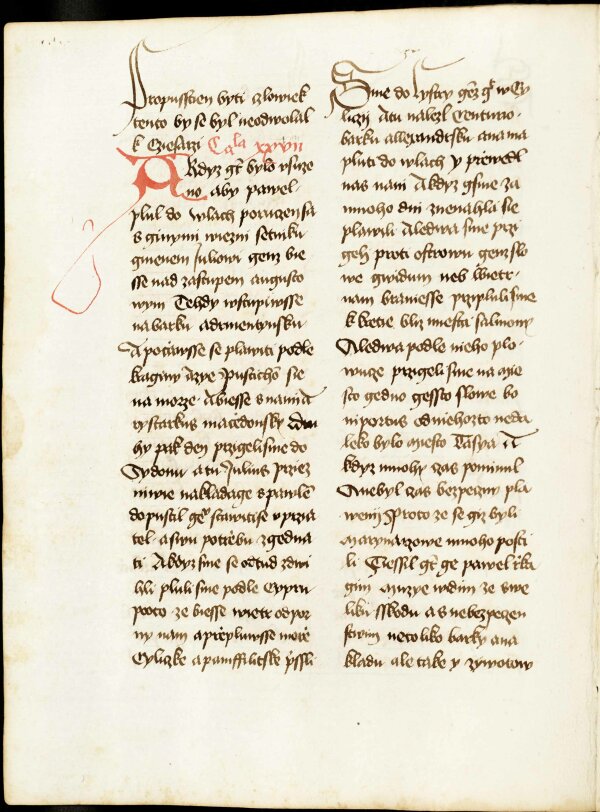 Propusstien byti czlowiek
tento by se byl neodwolal
k Cziesarzi Capla xxvii
A kdyz gt bylo vsuze
no aby pawel
plul do wlach poruczen sa
s ginymi wiezni setniku
gmenem Juliowi genz bie
sse nad zastupem augusto
wym Tehdy wstupiwsse
na barku adrmentynsku
A pocziawsse se plawiti podle
kraginy Azye Pustichom sie
na morze A biesse s nami A
rystarkus macedonsky Dru
hy pak den przigeli sme do
Sydonu a tu Julius prziez
niwie nakladage s pawlem
dopustil
tel a swu potrzebu zgedna
ti A kdyz sme se odtud zdwi
hli pluli sme podle Cypru
proto ze biesse wietr odpor
ny nam a przepluwsse morze
Cyliczke a pamffilitske prissli
Sme do lystry genz gt w Cy
liczij A tu nalezl Centurio
barku allexandrsku ana ma
pluti do wlach y przewedl
nas nani A kdyz gsme za
mnoho dni znenahla sie
plawili A ledwa sme przi
geli proti ostrowu genz slo
we gnidum neb wietr
nam braniesse przipluli sme
k kretie bliz miesta salmony
A ledwa podle nieho plo
wucze przigeli sme na mie
sto gedno gessto slowe bo
niportus od niehozto neda
leko bylo miesto Tasya A
kdyz mnohy czas pominul
A nebyl czas bezpeczny pla
wenij Proto ze se giz byli
marynarzowe mnoho posti
li Tiessil gt ge pawel rzka
gim Muzye widim ze s we
liku sskodu a s nebezpeczen
stwim netoliko barky a na
kladu ale take y zywotow